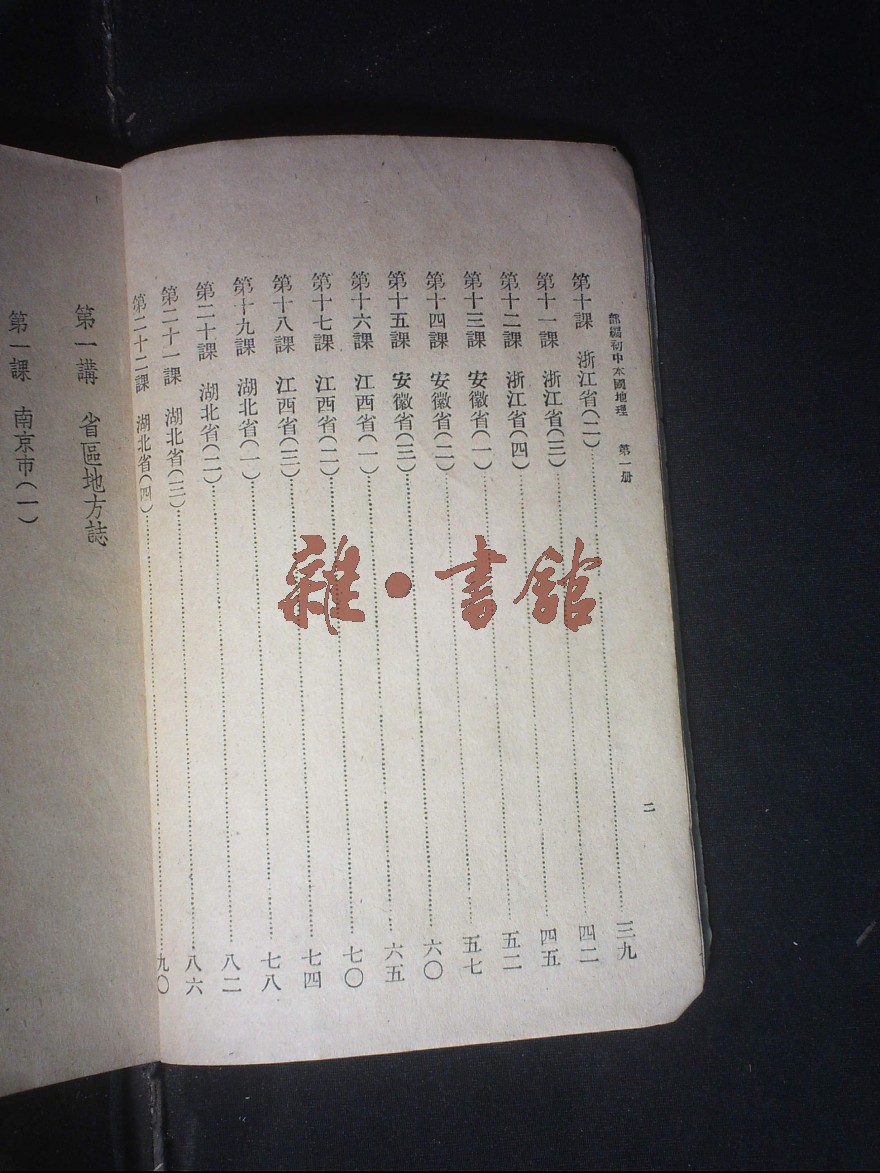 部編初中本國地理 第一册
二
第十課 浙江省(二)……三九
第十一課 浙江省(三)……四二
第十二課 浙江省(四)……四五
第十三課 安徽省(一)……五二
第十四課 安徽省(二)……五七
第十五課 安徽省(三)……六〇
第十六課 江西省(一)……六五
第十七課 江西省(二)……七〇
第十八課 江西省(三)……七四
第十九課 湖北省(一)……七八
第二十課 湖北省(二)……八二
第二十一課 湖北省(三)……八六
第二十二課 湖北省(四)……九〇
第一講 省區地方誌
第一課 南京市(一)
雜·書館